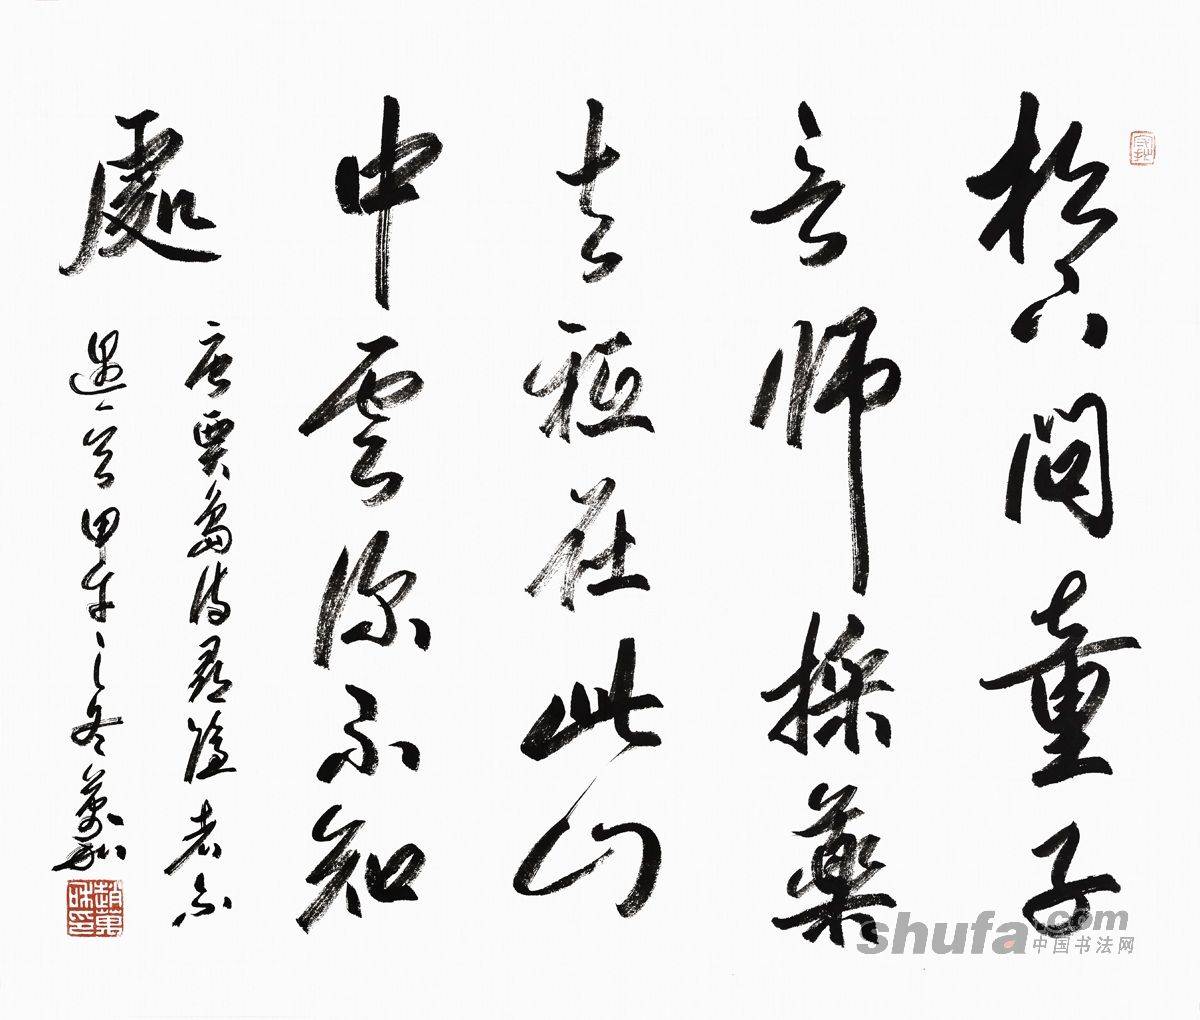 松下問童子
言師採藥
去秪在此山
中雲深不知
處
唐賈島詩尋隱者不
遇一首甲午之冬萬和
趙萬和印
shufa.com
中国书法网